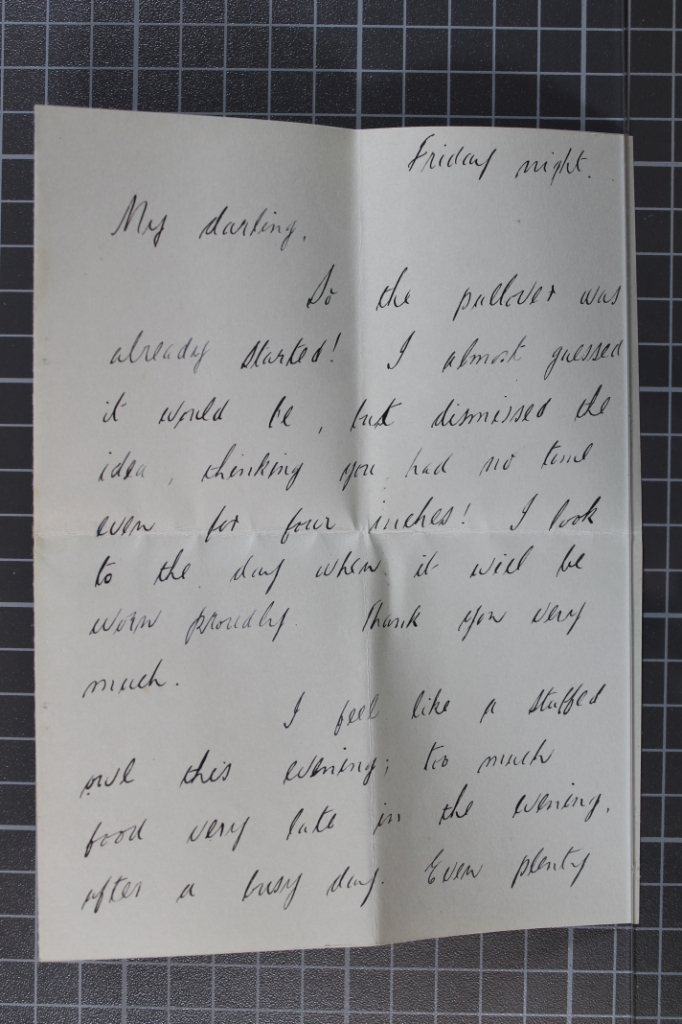 Friday night.
My darling,
So the pullover was
already started! I almost guessed
it would be, but dismissed the
idea, thinking you had no time
even for four inches! I look
to the day when it will be
worn proudly. Thank you very
much.
I feel like a stuffed
owl this evening; too much
food very late in the evening,
after a busy day. Even plenty